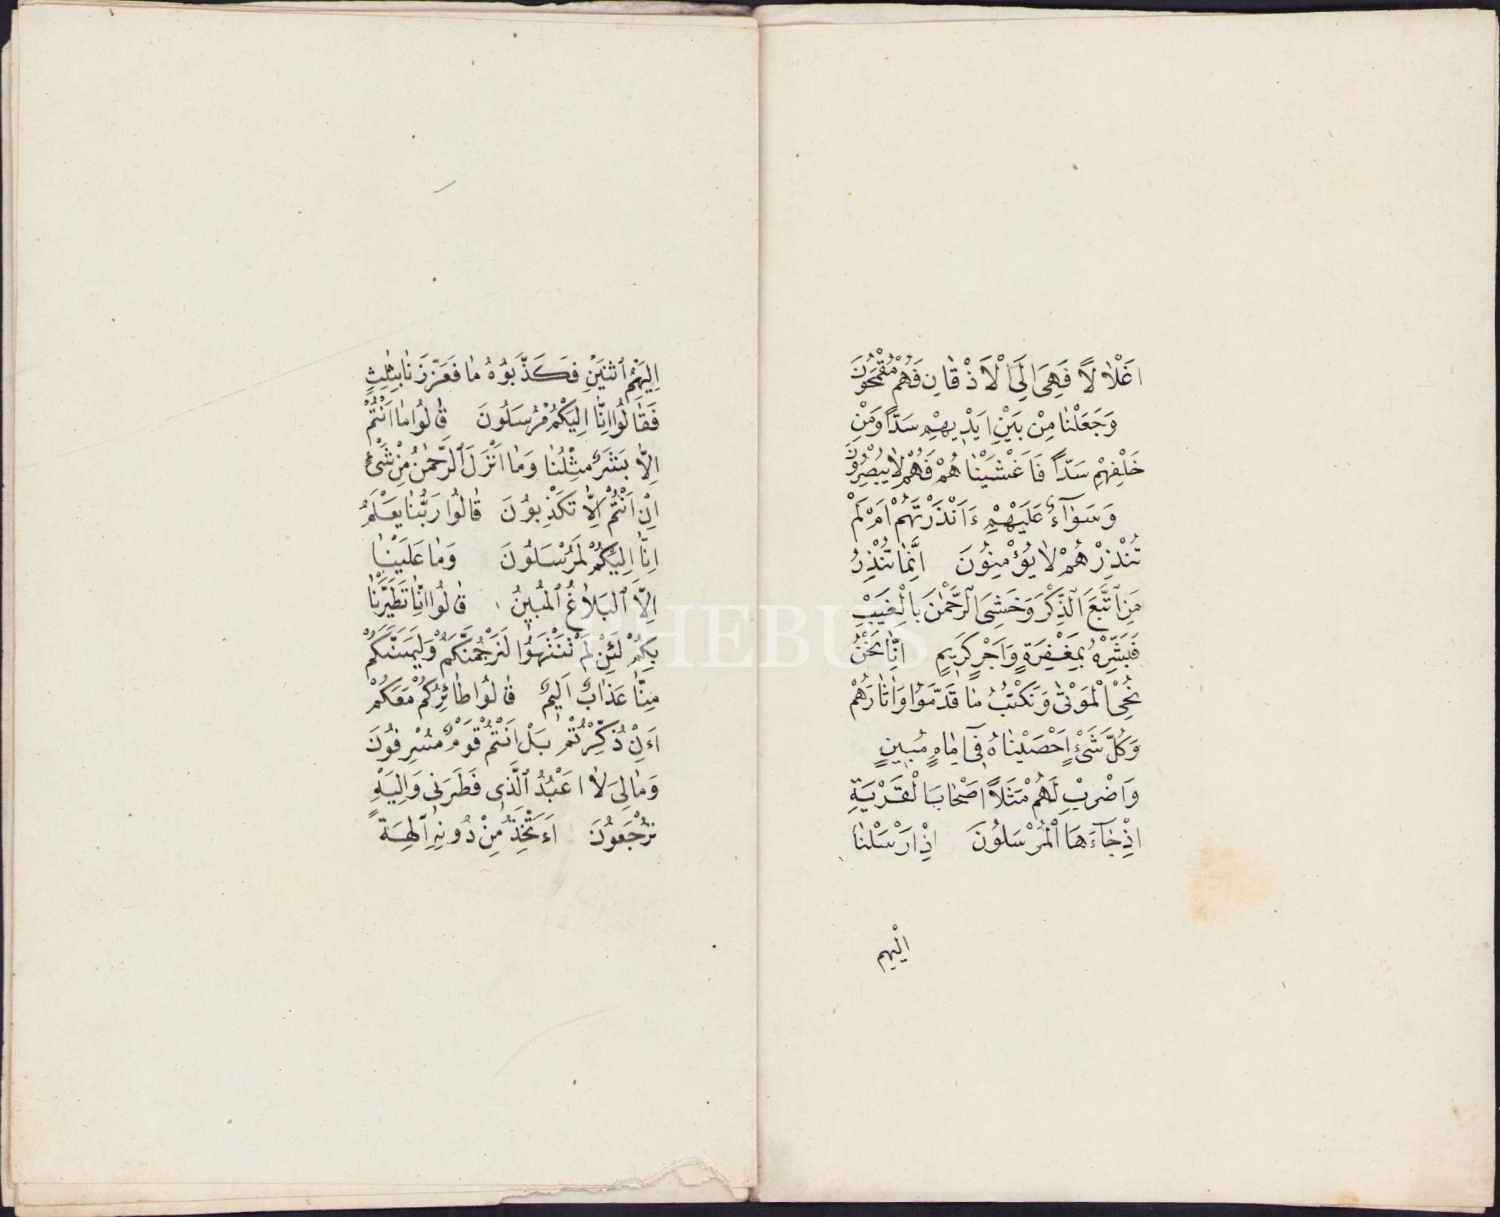 اَغْلَالًا فَهِىَ اِلَى الْاَذْقَانِ فَهُمْ مُقْمَحُونَ
وَجَعَلْنَا مِنْ بَيْنِ اَيْدِيهِمْ سَدًّا وَمِنْ
خَلْفِهِمْ سَدًّا فَاَغْشَيْنَاهُمْ فَهُمْ لَا يُبْصِرُونَ
وَسَوَآءٌ عَلَيْهِمْ ءَاَنْذَرْتَهُمْ اَمْ لَمْ
تُنْذِرْهُمْ لَا يُؤْمِنُونَ اِنَّمَا تُنْذِرُ
مَنِ اتَّبَعَ الذِّكْرَ وَخَشِىَ الرَّحْمٰنَ بِالْغَيْبِ
فَبَشِّرْهُ بِمَغْفِرَةٍ وَاَجْرٍ كَرِيمٍ اِنَّا نَحْنُ
نُحْىِ الْمَوْتٰى وَنَكْتُبُ مَا قَدَّمُوا وَاٰثَارَهُمْ
وَكُلَّ شَىْءٍ اَحْصَيْنَاهُ فٓى اِمَامٍ مُبِينٍ
وَاضْرِبْ لَهُمْ مَثَلًا اَصْحَابَ الْقَرْيَةِ
اِذْ جَآءَهَا الْمُرْسَلُونَ اِذْ اَرْسَلْنَا
اليهم
اِلَيْهِمُ اثْنَيْنِ فَكَذَّبُوهُمَا فَعَزَّزْنَا بِثَالِثٍ
فَقَالُوا اِنَّا اِلَيْكُمْ مُرْسَلُونَ قَالُوا مَا اَنْتُمْ
اِلَّا بَشَرٌ مِثْلُنَا وَمَا اَنْزَلَ الرَّحْمٰنُ مِنْ شَىْءٍ
اِنْ اَنْتُمْ اِلَّا تَكْذِبُونَ قَالُوا رَبُّنَا يَعْلَمُ
اِنَّا اِلَيْكُمْ لَمُرْسَلُونَ وَمَا عَلَيْنَا
اِلَّا الْبَلَاغُ الْمُبِينُ قَالُوا اِنَّا تَطَيَّرْنَا
بِكُمْ لَئِنْ لَمْ تَنْتَهُوا لَنَرْجُمَنَّكُمْ وَلَيَمَسَّنَّكُمْ
مِنَّا عَذَابٌ اَلِيمٌ قَالُوا طَائِرُكُمْ مَعَكُمْ
اَءِنْ ذُكِّرْتُمْ بَلْ اَنْتُمْ قَوْمٌ مُسْرِفُونَ
وَمَا لِىَ لَا اَعْبُدُ الَّذِى فَطَرَنِى وَاِلَيْهِ
تُرْجَعُونَ ءَاَتَّخِذُ مِنْ دُونِهِ اٰلِهَةً
PHEBUS